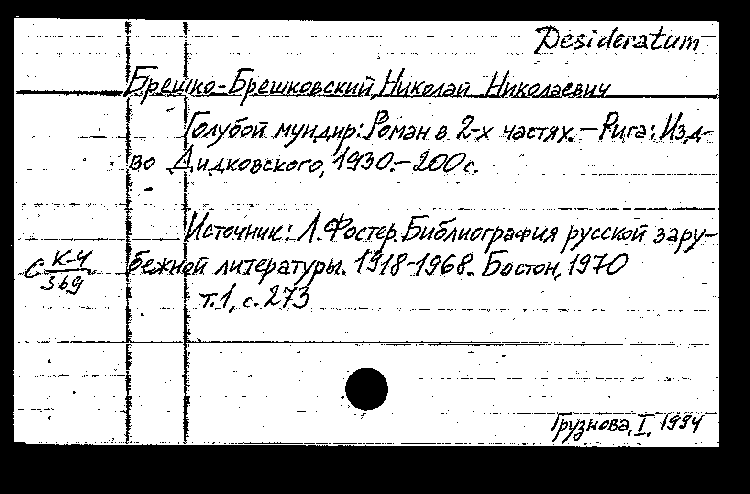 Desideratum
Брешко-Брешковский, Николай Николаевич
Голубой мундир: Роман в 2-х частях. — Рига: Изд-
во Дидковского, 1930. — 200 с.
Источник: Л. Фостер. Библиография русской зару-
бежной литературы. 1918-1968. Бостон, 1970
т. 1, с. 273
С К-4
369
Грузнова, I, 1994